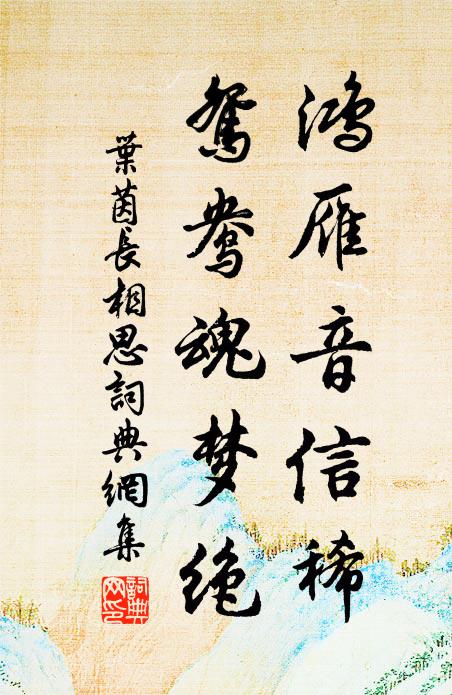 鸿雁音信稀
鸳鸯魂梦绝
葉茵長相思詞典網集
詞典